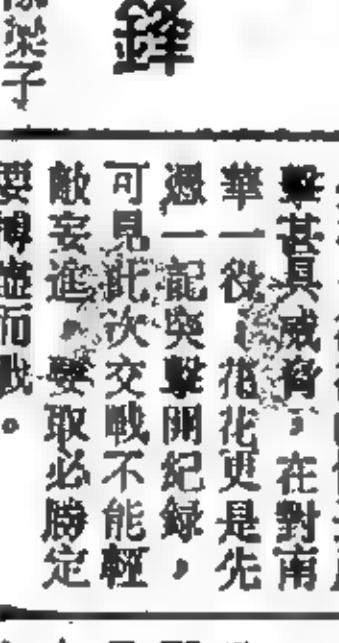 鋒
擊甚具威脅，在對南
華一役，花花更是先
憑一記突擊開紀録，
可見此次交戰不能輕
敵妄進，要取必勝定
要搏盡而戰。